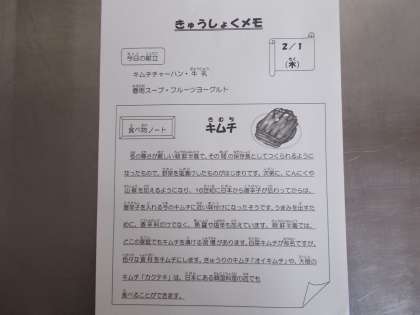 きゅうしょくメモ
今日の献立
2/1
(木)
キムチチャーハン・牛乳
春雨スープ・フルーツヨーグルト
食べ物ノート
キムチ
冬の寒さが厳しい朝鮮半島で、その間の保存食としてつくられるように
なったもので、野菜を塩漬けしたものがはじまりです。次第に、にんにくや
山椒を加えるようになり、16世紀に日本から唐辛子が伝わってからは、
唐辛子を入れる今のキムチに近い味付けになったそうです。うまみを出すた
めに、香辛料だけでなく、魚醤や塩辛も加えています。朝鮮半島では、
どこの家庭でもキムチを漬ける習慣があります。白菜キムチが有名ですが、
色々な食材をキムチにします。きゅうりのキムチ「オイキムチ」や、大根の
キムチ「カクテキ」は、日本にある韓国料理の店でも
食べることができます。